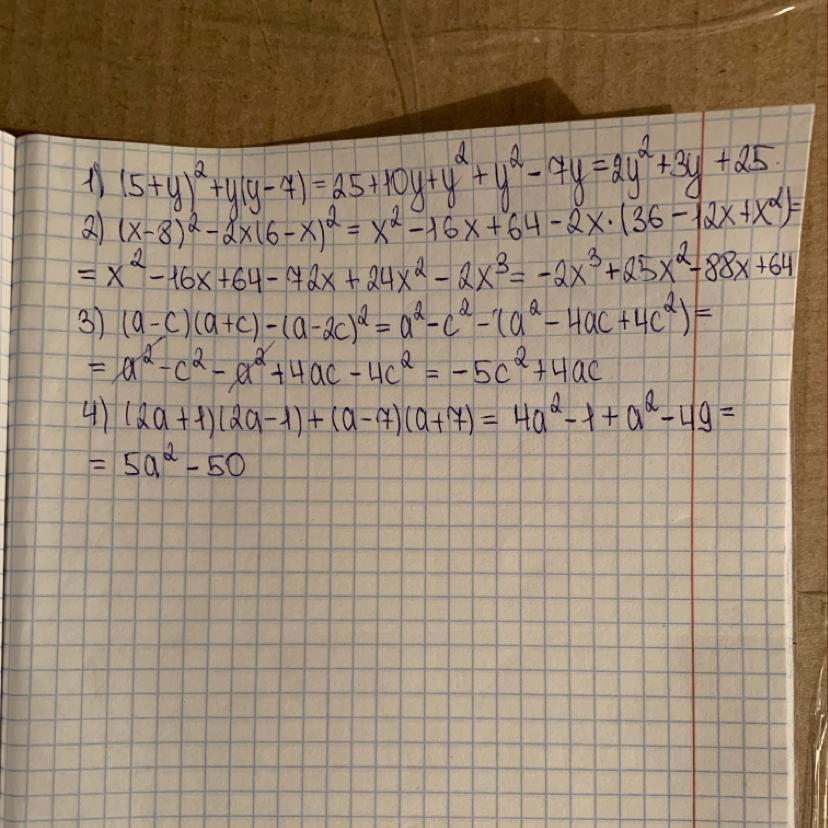 1) (5+y)² + y(y-7) = 25+10y+y² + y² - 7y = 2y² + 3y + 25.
2) (x-8)² - 2x(6-x)² = x² - 16x + 64 - 2x·(36 - 12x + x²) =
= x² - 16x + 64 - 72x + 24x² - 2x³ = -2x³ + 25x² - 88x + 64
3) (a-c)(a+c) - (a-2c)² = a² - c² - (a² - 4ac + 4c²) =
= a² - c² - a² + 4ac - 4c² = -5c² + 4ac
4) (2a+1)(2a-1) + (a-7)(a+7) = 4a² - 1 + a² - 49 =
= 5a² - 50